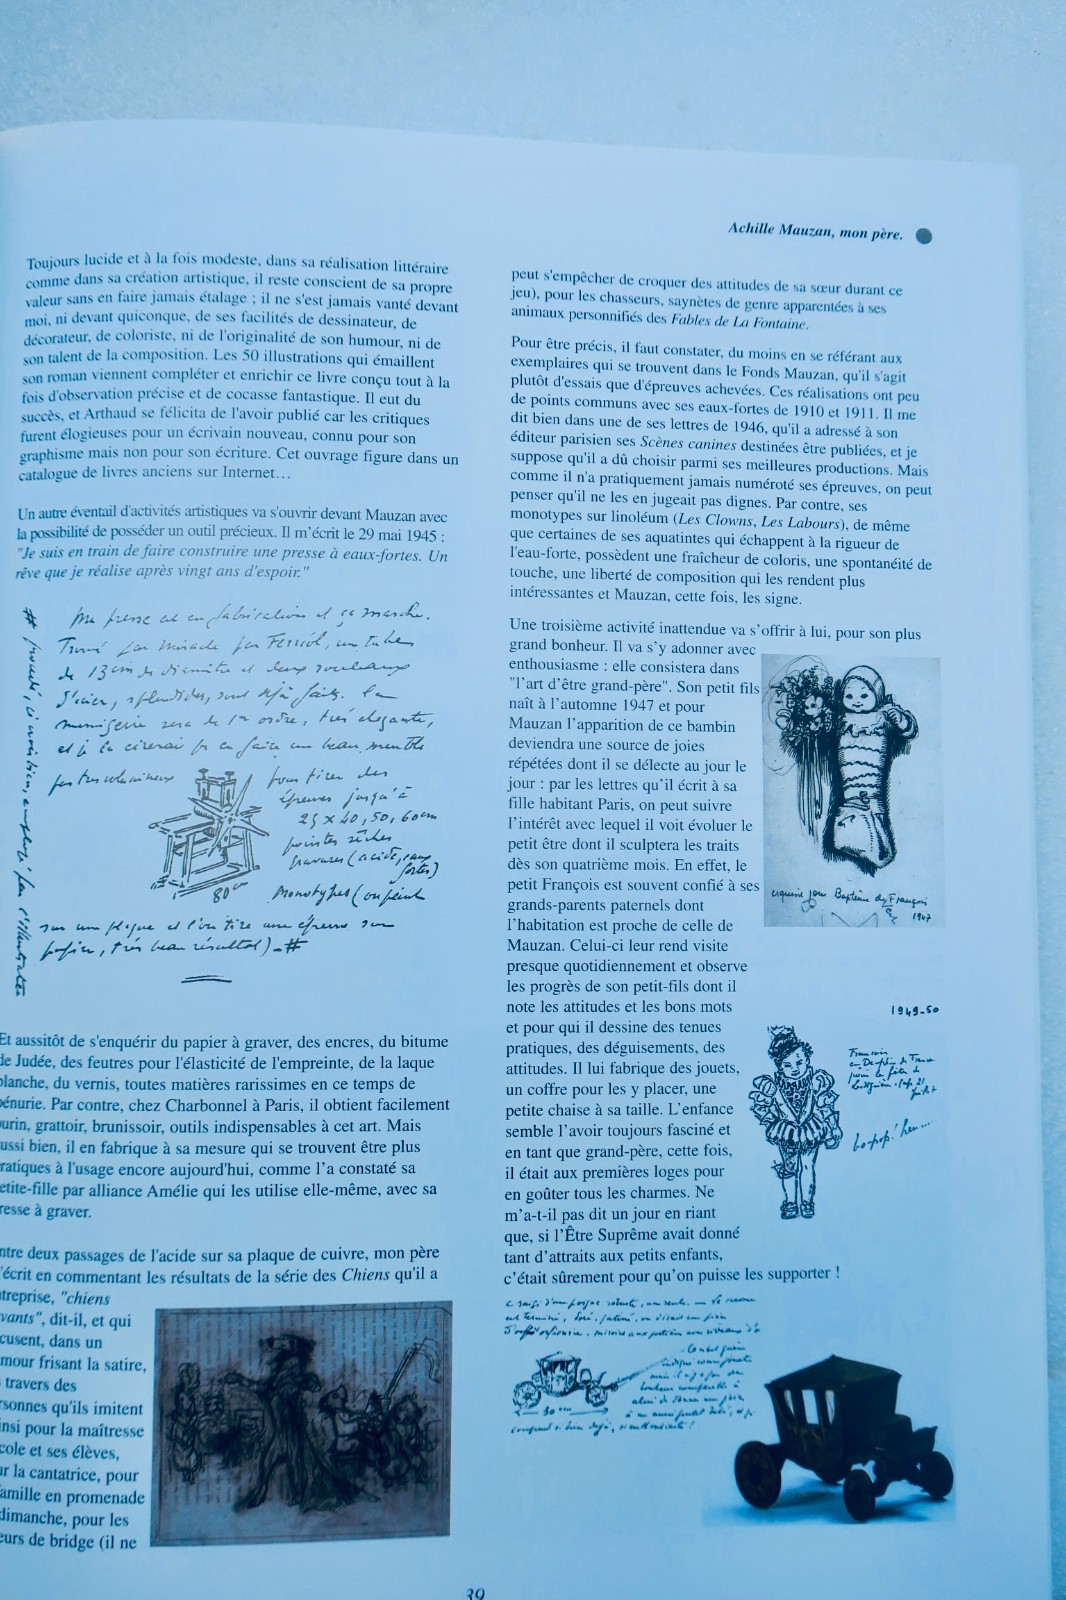 Achille Mauzan, mon père.
Toujours lucide et à la fois modeste, dans sa réalisation littéraire
comme dans sa création artistique, il reste conscient de sa propre
valeur sans en faire jamais étalage ; il ne s'est jamais vanté devant
moi, ni devant quiconque, de ses facilités de dessinateur, de
décorateur, de coloriste, ni de l'originalité de son humour, ni de
son talent de la composition. Les 50 illustrations qui émaillent
son roman viennent compléter et enrichir ce livre conçu tout à la
fois d'observation précise et de cocasse fantastique. Il eut du
succès, et Arthaud se félicita de l'avoir publié car les critiques
furent élogieuses pour un écrivain nouveau, connu pour son
graphisme mais non pour son écriture. Cet ouvrage figure dans un
catalogue de livres anciens sur Internet…
Un autre éventail d'activités artistiques va s'ouvrir devant Mauzan avec
la possibilité de posséder un outil précieux. Il m'écrit le 29 mai 1945 :
"Je suis en train de faire construire une presse à eaux-fortes. Un
rêve que je réalise après vingt ans d'espoir."
Ma presse est en fabrication et ça marche.
Trouvé par miracle par Ferréol, un tube
de 13 cm de diamètre et deux rouleaux
d'acier, splendides, sont déjà faits. La
menuiserie sera de 1er ordre, très élégante,
et je la cirerai pr en faire un beau meuble
pas très volumineux
pour tirer des
épreuves jusqu'à
25 x 40, 50, 60 cm
pointes sèches
gravures (acide, eaux
fortes)
80 cm
Monotypes (on peint
sur une plaque et l'on tire une épreuve sur
papier, très beau résultat) - #
# procédé, ici voisin, employé par l'illustrateur
Et aussitôt de s'enquérir du papier à graver, des encres, du bitume
de Judée, des feutres pour l'élasticité de l'empreinte, de la laque
blanche, du vernis, toutes matières rarissimes en ce temps de
pénurie. Par contre, chez Charbonnel à Paris, il obtient facilement
burin, grattoir, brunissoir, outils indispensables à cet art. Mais
aussi bien, il en fabrique à sa mesure qui se trouvent être plus
pratiques à l'usage encore aujourd'hui, comme l'a constaté sa
petite-fille par alliance Amélie qui les utilise elle-même, avec sa
presse à graver.
ntre deux passages de l'acide sur sa plaque de cuivre, mon père
'écrit en commentant les résultats de la série des Chiens qu'il a
treprise, "chiens
vants", dit-il, et qui
cusent, dans un
mour frisant la satire,
travers des
rsonnes qu'ils imitent
insi pour la maîtresse
cole et ses élèves,
ur la cantatrice, pour
amille en promenade
dimanche, pour les
eurs de bridge (il ne
peut s'empêcher de croquer des attitudes de sa sœur durant ce
jeu), pour les chasseurs, saynètes de genre apparentées à ses
animaux personnifiés des Fables de La Fontaine.
Pour être précis, il faut constater, du moins en se référant aux
exemplaires qui se trouvent dans le Fonds Mauzan, qu'il s'agit
plutôt d'essais que d'épreuves achevées. Ces réalisations ont peu
de points communs avec ses eaux-fortes de 1910 et 1911. Il me
dit bien dans une de ses lettres de 1946, qu'il a adressé à son
éditeur parisien ses Scènes canines destinées être publiées, et je
suppose qu'il a dû choisir parmi ses meilleures productions. Mais
comme il n'a pratiquement jamais numéroté ses épreuves, on peut
penser qu'il ne les en jugeait pas dignes. Par contre, ses
monotypes sur linoléum (Les Clowns, Les Labours), de même
que certaines de ses aquatintes qui échappent à la rigueur de
l'eau-forte, possèdent une fraîcheur de coloris, une spontanéité de
touche, une liberté de composition qui les rendent plus
intéressantes et Mauzan, cette fois, les signe.
Une troisième activité inattendue va s'offrir à lui, pour son plus
grand bonheur. Il va s'y adonner avec
enthousiasme : elle consistera dans
"l'art d'être grand-père". Son petit fils
naît à l'automne 1947 et pour
Mauzan l'apparition de ce bambin
deviendra une source de joies
répétées dont il se délecte au jour le
jour : par les lettres qu'il écrit à sa
fille habitant Paris, on peut suivre
l'intérêt avec lequel il voit évoluer le
petit être dont il sculptera les traits
dès son quatrième mois. En effet, le
petit François est souvent confié à ses
grands-parents paternels dont
l'habitation est proche de celle de
Mauzan. Celui-ci leur rend visite
presque quotidiennement et observe
les progrès de son petit-fils dont il
note les attitudes et les bons mots
et pour qui il dessine des tenues
pratiques, des déguisements, des
attitudes. Il lui fabrique des jouets,
un coffre pour les y placer, une
petite chaise à sa taille. L'enfance
semble l'avoir toujours fasciné et
en tant que grand-père, cette fois,
il était aux premières loges pour
en goûter tous les charmes. Ne
m'a-t-il pas dit un jour en riant
que, si l'Être Suprême avait donné
tant d'attraits aux petits enfants,
c'était sûrement pour qu'on puisse les supporter !
esquisse pour Baptême de François
1947
1949-50
François
en Dauphin de France
pour la fête de
30 cm
39